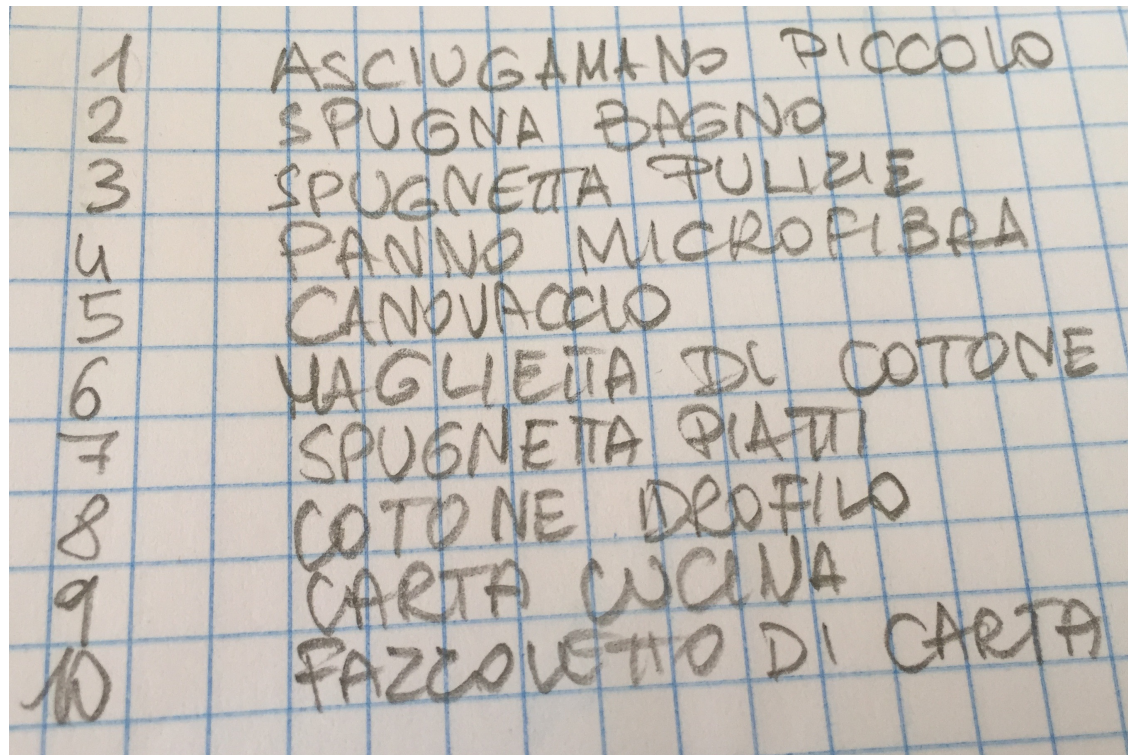 1 ASCIUGAMANO PICCOLO
2 SPUGNA BAGNO
3 SPUGNETTA PULIZIE
4 PANNO MICROFIBRA
5 CANOVACCIO
6 MAGLIETTA DI COTONE
7 SPUGNETTA PIATTI
8 COTONE IDROFILO
9 CARTA CUCINA
10 FAZZOLETTO DI CARTA